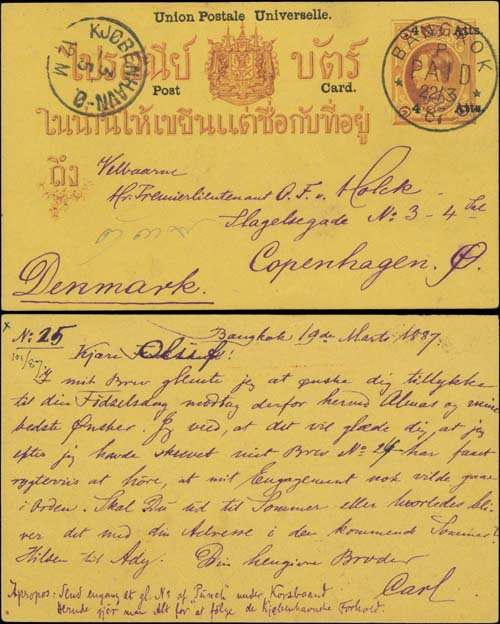 Union Postale Universelle.
KJØBENHAVN Ø
1 5
12 M
BANGKOK
P
PAID
22/3
87
4 Atts.
4 Atts.
ไปรสนีย์ บัตร์
Post Card.
ในด้านนี้ให้เขียนแต่ชื่อกับที่อยู่
ถึง
Velbaarne
Hr. Premierlieutenant O. F. v. Holck.
Slagelsegade No 3 - 4 Sal
Copenhagen. Ø.
Denmark.
No: 25
Bangkok 19de Marts 1887.
Kjære
I mit Brev glemte jeg at ønske dig tillykke
til din Fødselsdag modtag derfor herved Almas og mine
bedste Ønsker. Jeg veed, at det vil glæde dig, at jeg
efter jeg havde skrevet mit Brev No 24 har faaet
rygtevis at høre, at mit Engagement nok vilde gaae
i Orden. Skal Du ud til Sommer eller hvorledes bli-
ver det med din Adresse i den kommende Sommer?
Hilsen til Ady. Din hengivne Broder
Carl.
Apropos: Send engang et gl. No af "Punch" under Korsbaand
Herude gjør man Alt for at følge de Kjøbenhavnske Forhold.